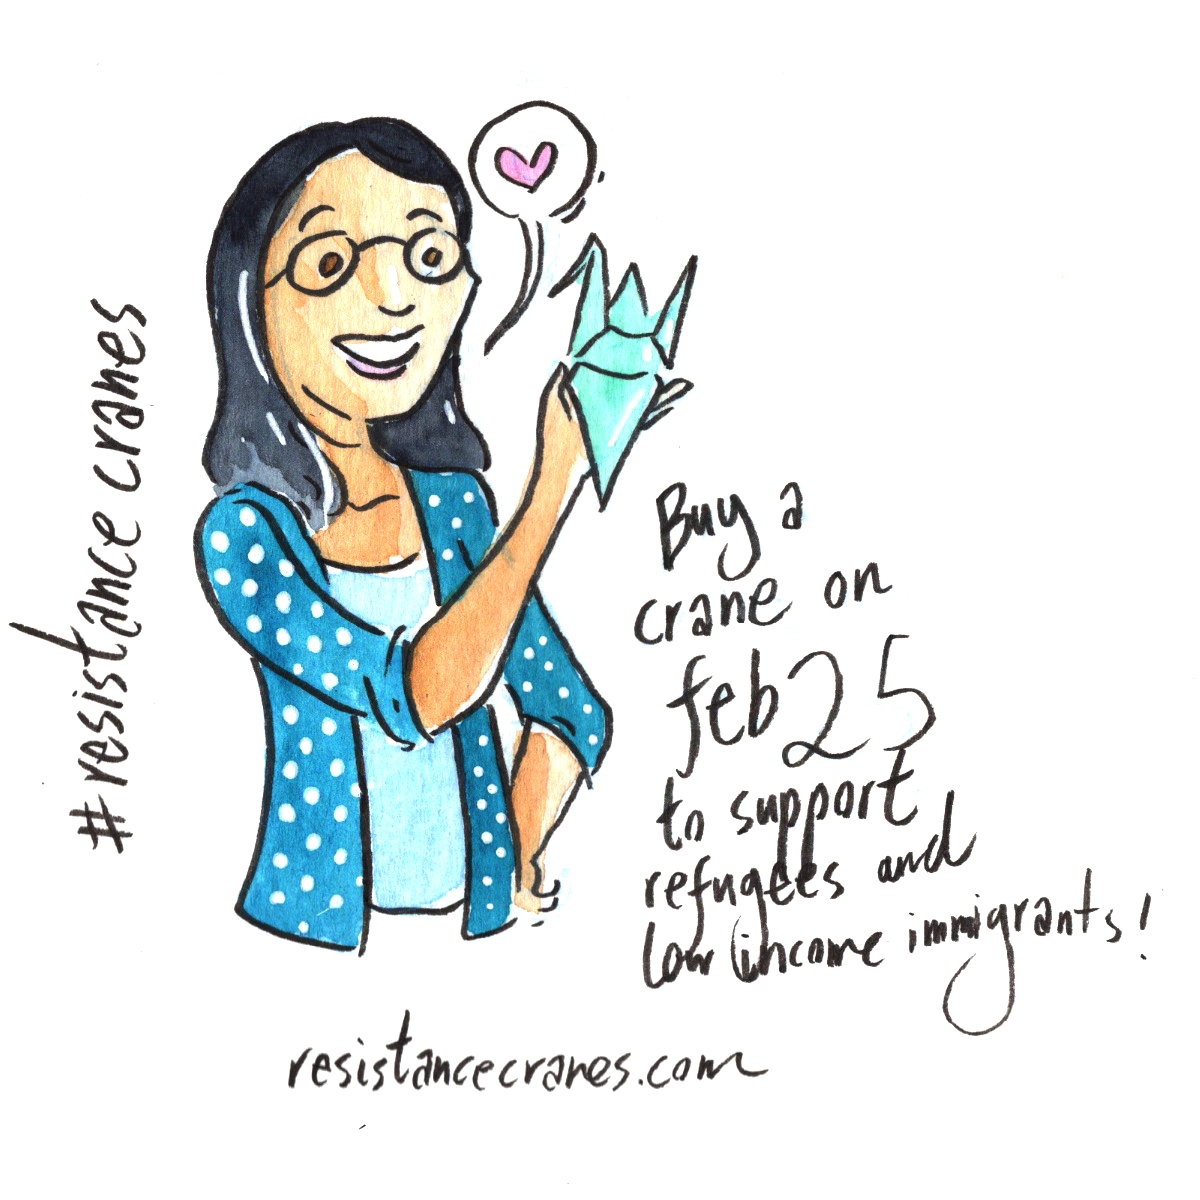 #resistance cranes
Buy a
crane on
feb 25
to support
refugees and
low income immigrants!
resistancecranes.com